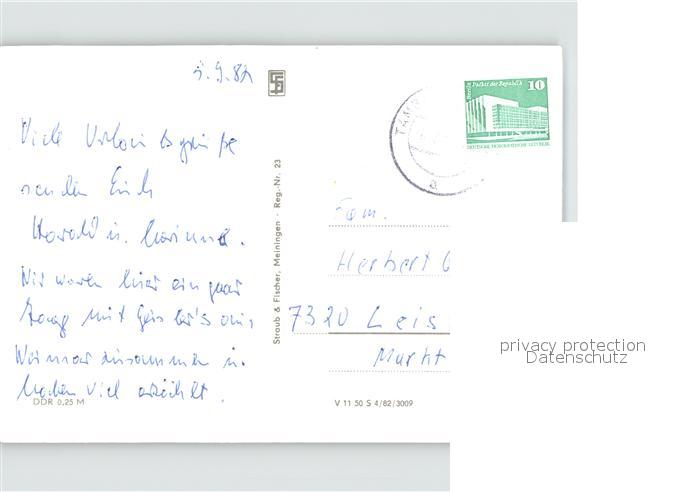 5.9.82
10
Berlin Palast der Republik
DEUTSCHE DEMOKRATISCHE REPUBLIK
TAMB
a
Viele Urlaubsgrüße
senden Euch
Harald u. Corinna.
Wir waren hier ein paar
Tage mit aus
Weimar zusammen u.
haben viel erzählt.
DDR 0,25 M
Straub & Fischer, Meiningen · Reg.-Nr. 23
Fam.
Herbert
7320 Leis
Markt
V 11 50 S 4/82/3009
privacy protection
Datenschutz